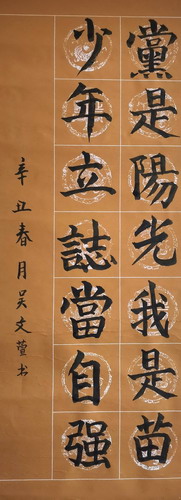 黨是陽先我是苗
少年立誌當自强
辛丑春月吴文萱书